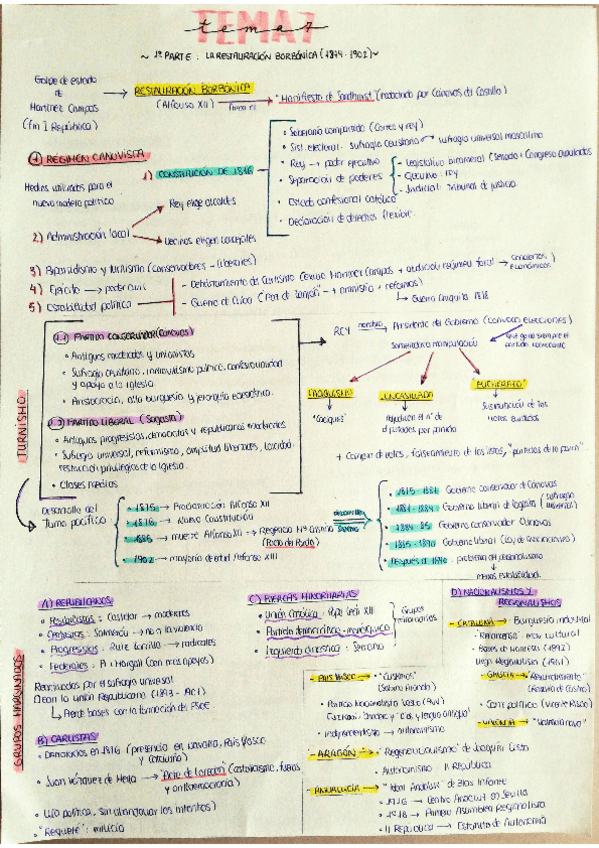 TEMA 7
tema 7
~ 1ª PARTE : LA RESTAURACIÓN BORBÓNICA (1874-1902) ~
Golpe de estado
de
Martínez Campos
(fin I República)
→ RESTAURACIÓN BORBÓNICA
(Alfonso XII) → "Manifiesto de Sandhurst" (redactado por Cánovas del Castillo)
RÉGIMEN CANOVISTA
Medios utilizados para el
nuevo modelo político
1) CONSTITUCIÓN DE 1876
• Soberanía compartida (Cortes y rey)
• Sist. electoral - sufragio censitario → sufragio universal masculino
• Rey → poder ejecutivo
• Separación de poderes
- Legislativo bicameral (Senado + Congreso diputados)
- Ejecutivo: rey
- Judicial: tribunal de justicia
• Estado confesional católico
• Declaración de derechos flexible.
2) Administración local
Rey elige alcaldes
Vecinos eligen concejales
3) Bipartidismo y turnismo (conservadores - liberales)
4) Ejército → poder civil
5) Estabilidad política
- Debilitamiento de Carlismo (exilio Martínez Campos + abolición régimen foral → conciertos económicos
- Guerra de Cuba (Paz de Zanjón" - + amnistía + reformas)
↳ Guerra Chiquita 1878
TURNISMO
1) PARTIDO CONSERVADOR (Cánovas)
• Antiguos moderados y unionistas
• Sufragio censitario, inmovilismo político, confesionalidad
y apoyo a la iglesia.
• Aristocracia, alta burguesía y jerarquía eclesiástica.
2) PARTIDO LIBERAL (Sagasta)
• Antiguos progresistas, demócratas y republicanos moderados
• Sufragio universal, reformismo, amplitud libertades,
restricción privilegios de la Iglesia.
• Clases medias
REY nombra → Presidente del Gobierno (convoca elecciones)
Sistemática manipulación
que gane siempre el
partido convocante
CACIQUISMO
"Caciques"
ENCASILLADO
Adjudican el nº de
diputados por partido
PUCHERAZO
Sustitución de las
+ Compra de votos, falseamiento de las listas, "partidas de la porra"
Desarrollo del
Turno pacífico
• 1875 → Proclamación Alfonso XII
• 1876 → Nueva Constitución
• 1885 → muere Alfonso XII → Regencia Mª Cristina
(Pacto del Pardo)
• 1902 → mayoría de edad Alfonso XIII
• 1875-1881 Gobierno conservador de Cánovas
• 1881-1884 Gobierno liberal de Sagasta (sufragio
• 1884-85 Gobierno conservador Cánovas
• 1885-1890 Gobierno liberal (Ley de Asociaciones)
• Después de 1890: problema del personalismo
↓
menos estabilidad
GRUPOS MARGINADOS
A) REPUBLICANOS
• Posibilistas: Castelar → moderados
• Centristas: Salmerón → no a la violencia
• Progresistas: Ruiz Zorrilla → radicales
• Federales: Pi i Margall (con más apoyos)
Reanimados por el sufragio universal
Crean la Unión Republicana (1893 -
↳ Pierde bases con la formación del PSOE
B) CARLISTAS
• Derrotados en 1876 (presencia en Navarra, País Vasco
y Cataluña)
• Juan Vázquez de Mella → "Acta de Loredán" (catolicismo, fueros
y antidemocracia)
• Vía política, sin abandonar los intentos)
• "Requeté": milicia
C) FUERZAS MINORITARIAS
• Unión Católica: Papa León XIII
• Partido democrático-monárquico
• Izquierda dinástica: Serrano
Grupos
minoritarios
D) NACIONALISMOS Y
REGIONALISMOS
- CATALUÑA → Burguesía industrial
"Renaixença": mov cultural
Bases de Manresa (1892)
Lliga Regionalista (1901)
- GALICIA → Resurdimento"
(Rosalía de Castro)
• Cont político (Vicente Risco)
- VALENCIA → "Valencia nova"
- PAIS VASCO → • "Euskeros"
(Sabino Arana)
• Partido Nacionalista Vasco (PNV)
Euzkadi, bandera y "Dios y leyes antiguas"
• Independentista → autonomismo
- ARAGÓN → "Regeneracionismo" de Joaquín Costa
Autonomismo II República
- ANDALUCÍA → "Ideal Andaluz" de Blas Infante
• 1916 → Centro Andaluz en Sevilla
• 1918 → Primera Asamblea Regionalista
• II República → Estatuto de Autonomía